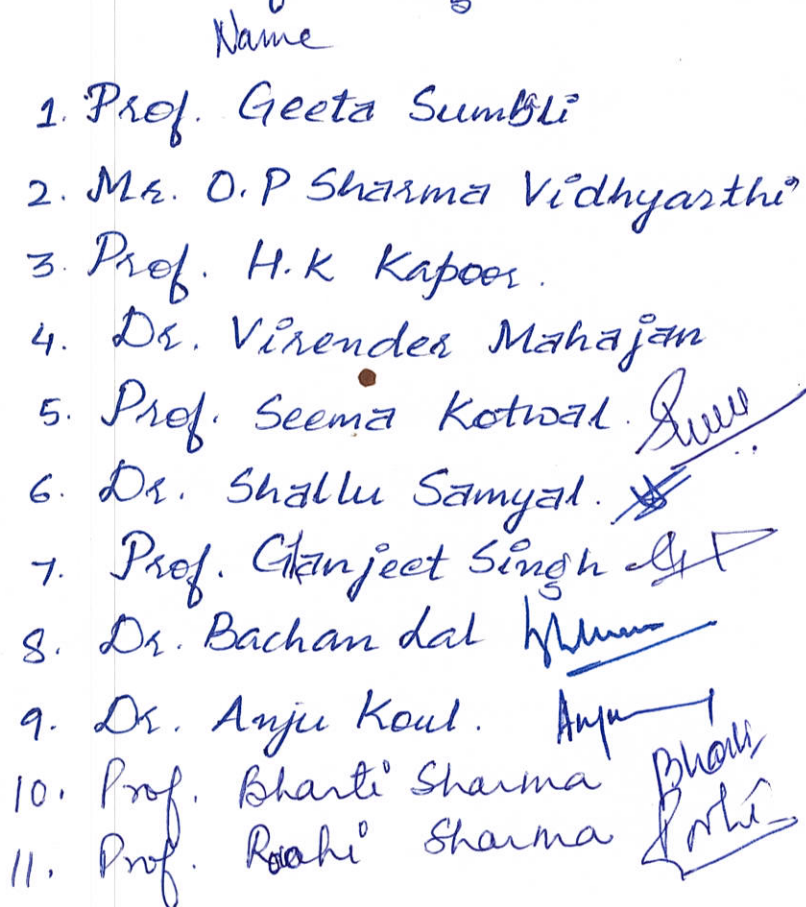 Name
1. Prof. Geeta Sumbli
2. Mr. O.P Sharma Vidhyarthi
3. Prof. H.K Kapoor.
4. Dr. Virender Mahajan
5. Prof. Seema Kotwal.
6. Dr. Shallu Samyal.
7. Prof. Glanjeet Singh
8. Dr. Bachan Lal
9. Dr. Anju Koul. Anju
10. Prof. Bharti Sharma Bharti
11. Prof. Sharma